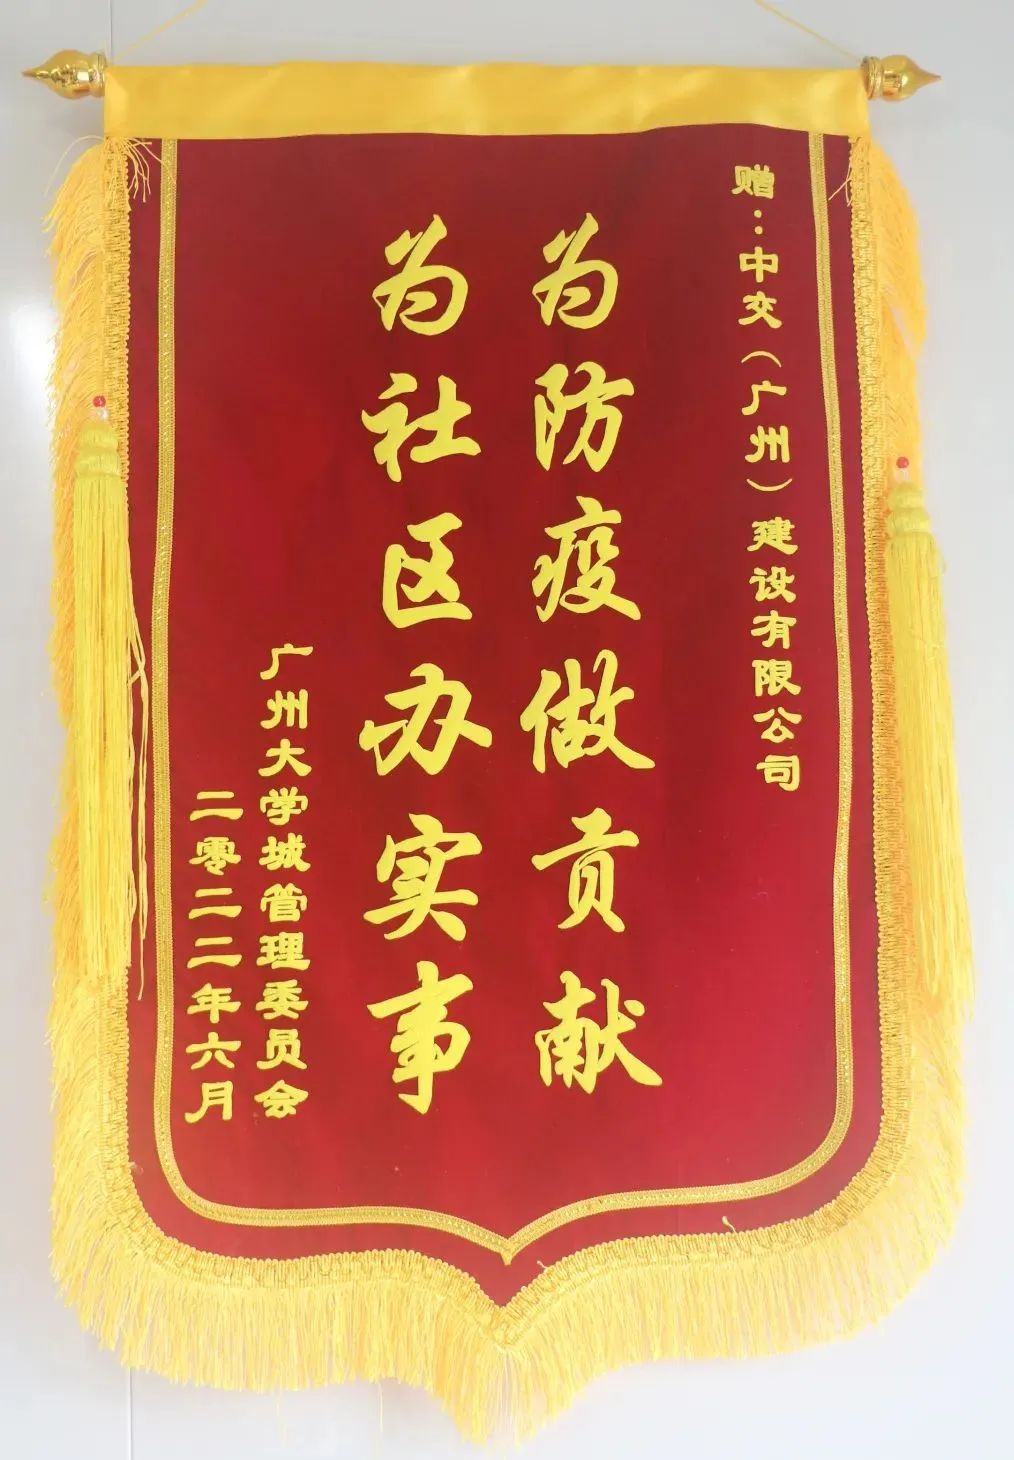 赠：中交（广州）建设有限公司
为防疫做贡献
为社区办实事
广州大学城管理委员会
二零二二年六月